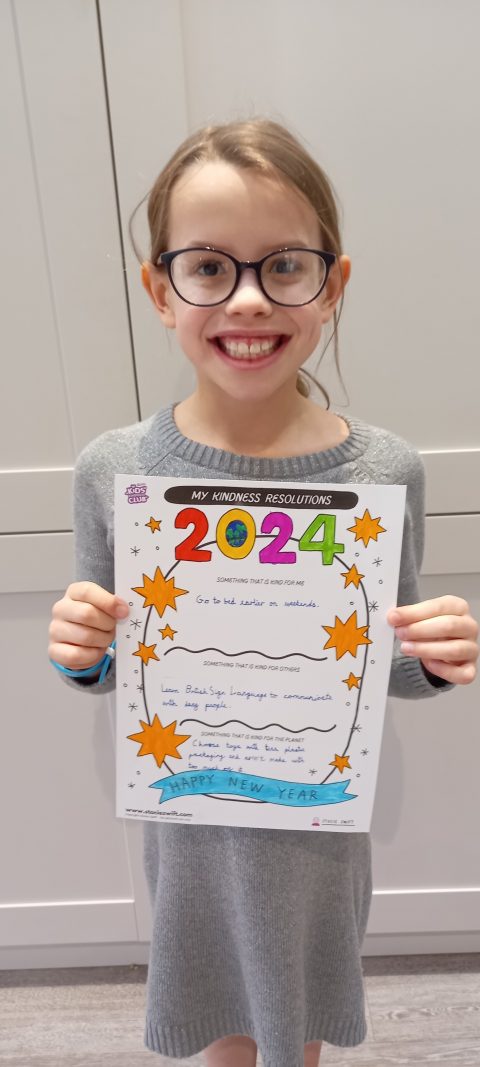 KiDS
CLUB
MY KINDNESS RESOLUTIONS
2024
SOMETHING THAT IS KIND FOR ME
Go to bed earlier on weekends.
SOMETHING THAT IS KIND FOR OTHERS
Learn British Sign Language to communicate
with deaf people.
SOMETHING THAT IS KIND FOR THE PLANET
Choose toys with less plastic
packaging and aren't made with
too much of it
HAPPY NEW YEAR
www.stacieswift.com
STACIE SWIFT